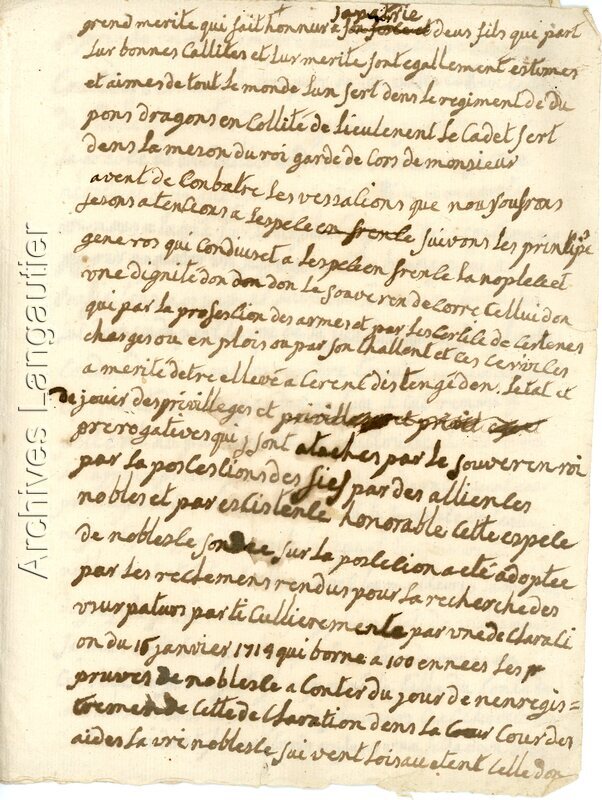 grend merite qui fait honnur a sa patrie deus fils qui part
lur bonnes Callites et lur merite sont egallement estimes
et aimes de tout le monde lun sert dens le regiment de du
pons dragons en Collité de lieutenent le Cadet sert
dens la meson du roi garde de Cors de monsieur
avent de Conbatre les vessations que nous soufrons
fesons atentions a lespese en frense suivons les prinsipes
generos qui Conduiset a lespese en frense la noplese et
une dignité don don don le souveren decorre Cellui don
qui par la profession des armes et par les de Certenes
charges ou en plois ou par son thallent et ces cervices
a merité detre ellevé a Cerent distengé don letat et
de jouir des privilleges et
prerogatives qui j sont ataches par le souveren roi
par la possessions des fiefs par des alliences
nobles et par honorable Cette espese
de noblesse fondee sur la possesion a eté adoptee
par les reclemens rendus pour la recherche des
usurpaturs parti Cullierement par une de Clarati
on du 16 janvier 1714 qui borne a 100 ennees les p
pruves de noblesse a Conter du jour de nenregis=
tremen de Cette de Claration dens la Cour Cour des
aides la vri noblesse sui vent loisau etent Celle don
Archives Langautier